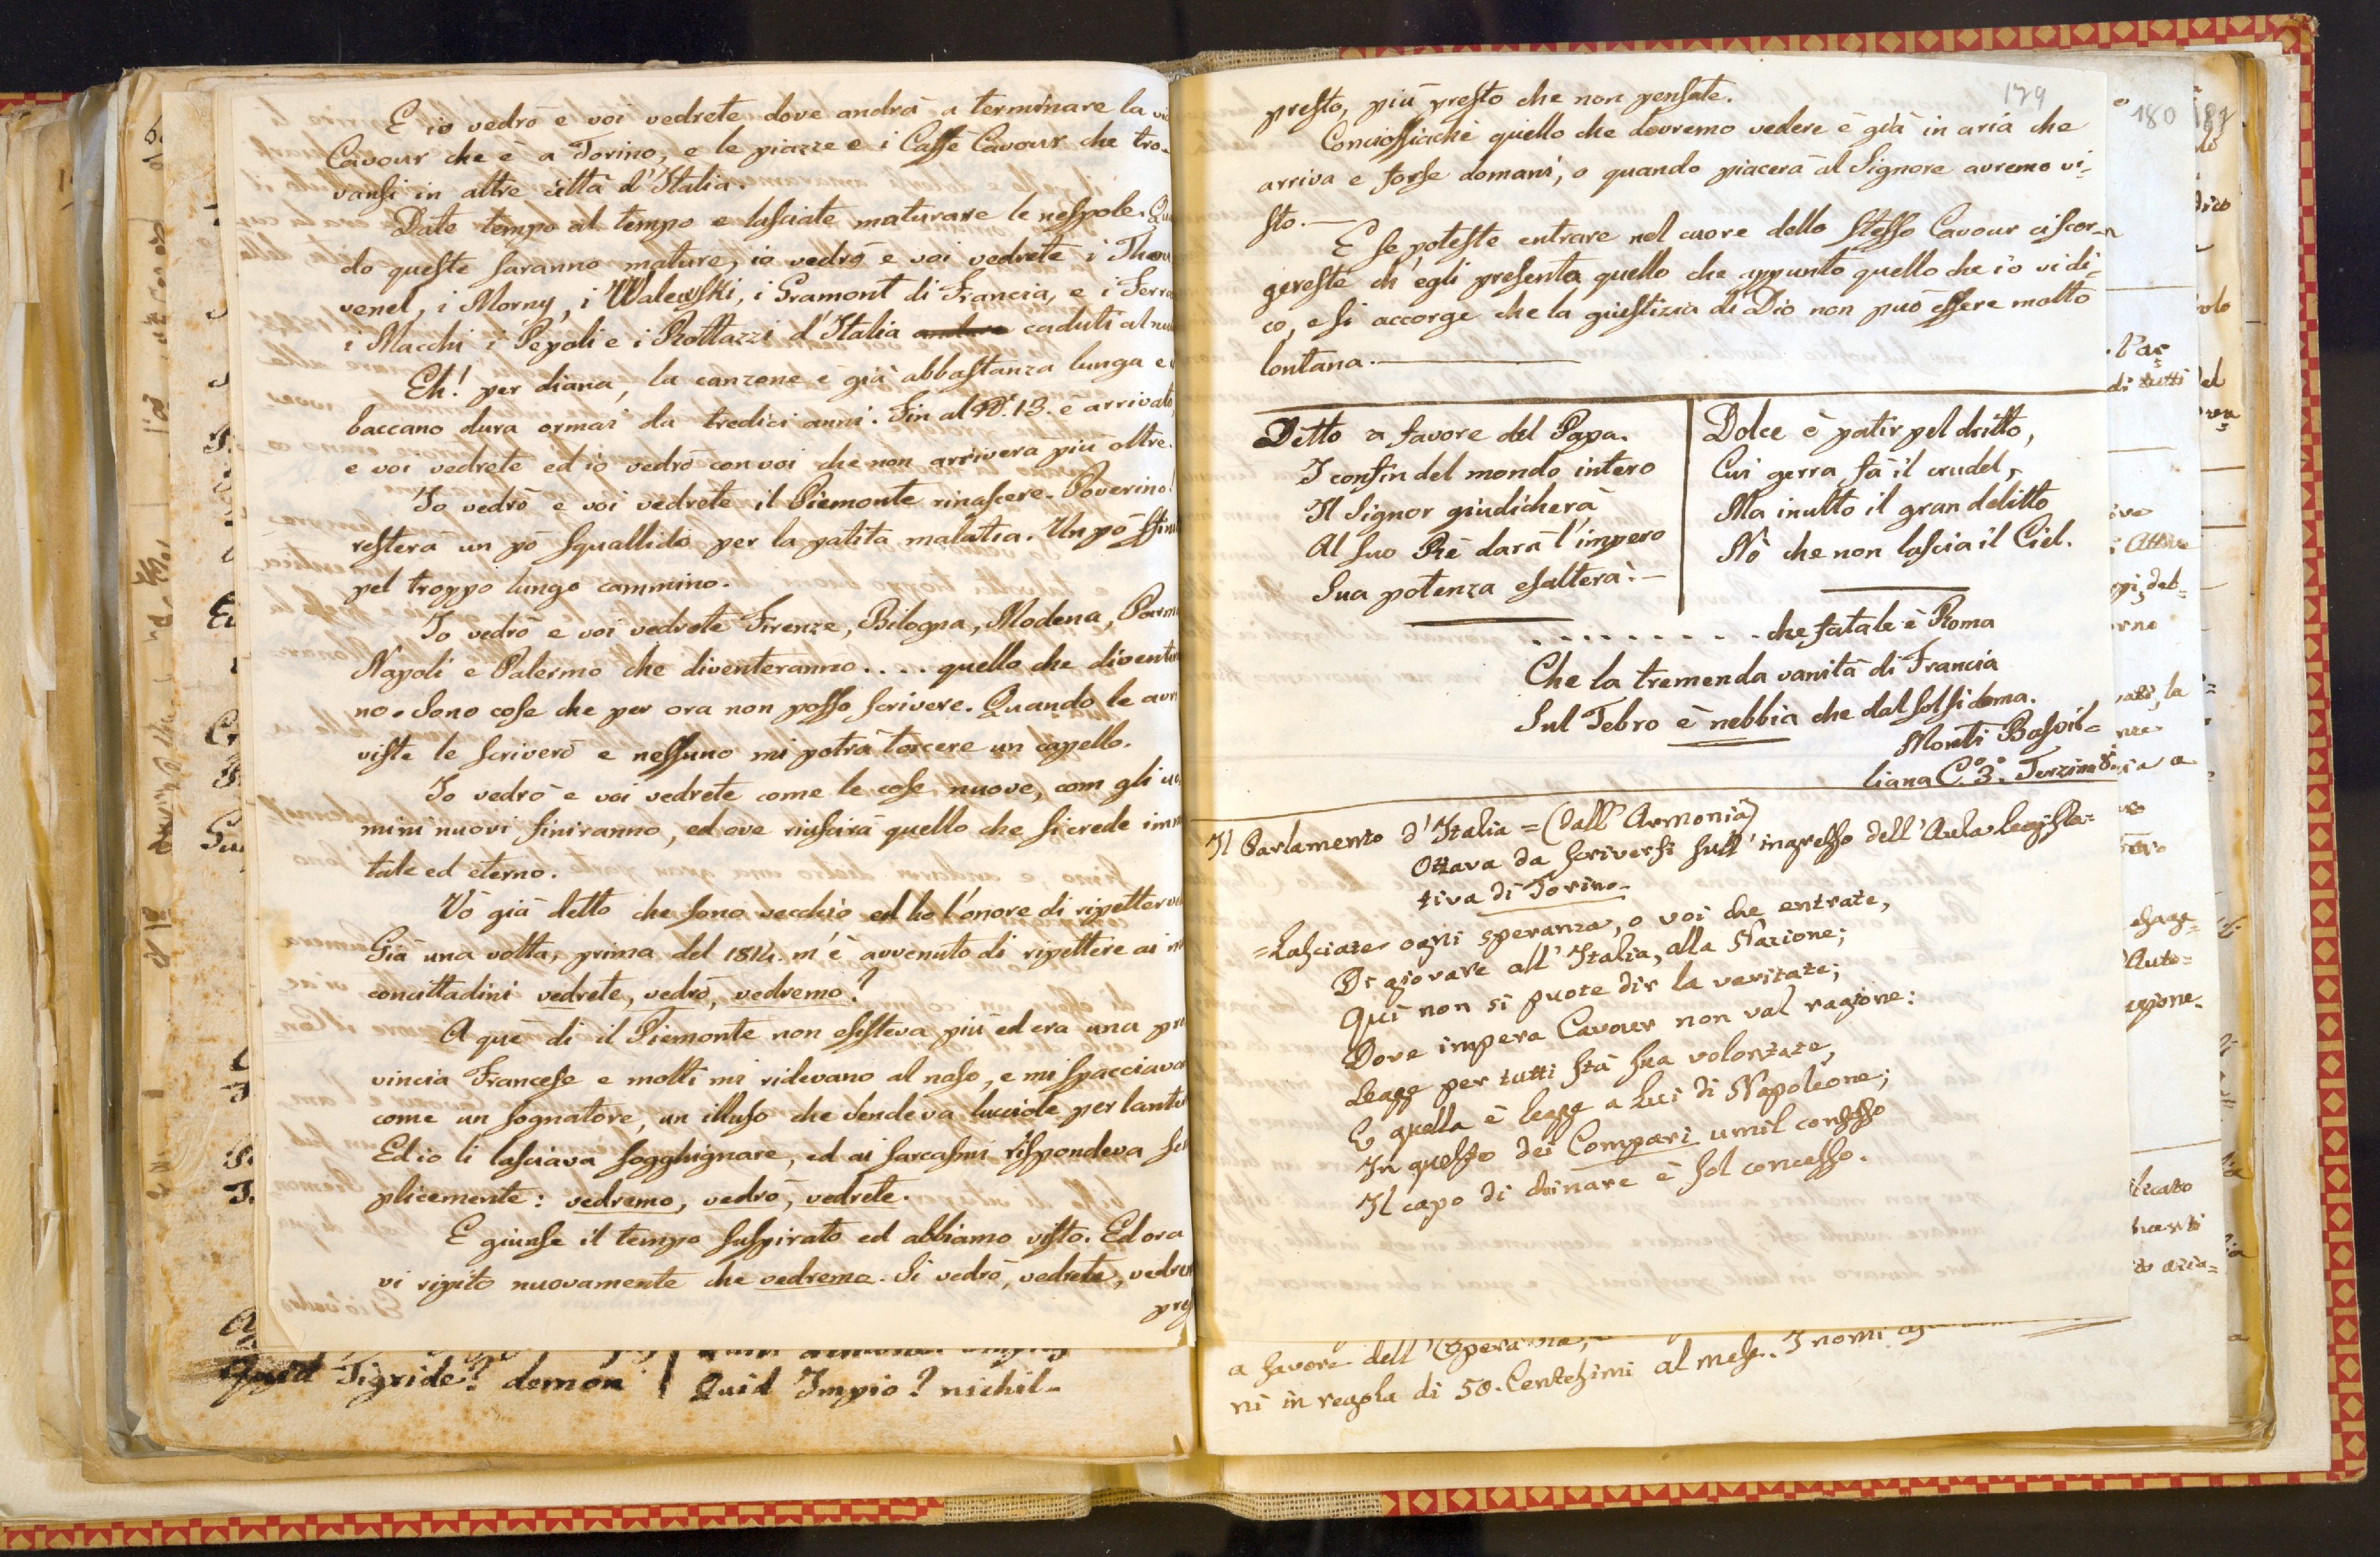 E io vedrò e voi vedrete dove andrà a terminare la
Cavour che è a Torino, e le piazze e i Caffè Cavour che tro-
vansi in altre città d'Italia.
Date tempo al tempo e lasciate maturare le nespole.
do queste saranno mature, io vedrò e voi vedrete i Thou
venel, i Morny, i Walewski, i Gramont di Francia, e i Ferra
i Macchi i Pepoli e i Rattazzi d'Italia caduti al
Eh! per diana, la canzone è già abbastanza lunga e
baccano dura ormai da tredici anni. Fin al N. 13. è arrivato,
e voi vedrete ed io vedrò con voi che non arriverà più oltre.
Io vedrò e voi vedrete il Piemonte rinascere. Poverino!
resterà un pò squallido per la patita malatia. Un pò
pel troppo lungo cammino.
Io vedrò e voi vedrete Firenze, Bilogna, Modena, Parm
Napoli e Palermo che diventeranno .... quello che divente
no. Sono cose che per ora non posso scrivere. Quando le avr
viste le scriverò e nessuno mi potrà torcere un capello.
Io vedrò e voi vedrete come le cose nuove, com gli uo
mini nuovi finiranno, ed ove riuscirà quello che si crede imm
tale ed eterno.
Vò già detto che sono vecchio ed ho l'onore di ripetterve
Già una volta, prima del 1814. m'è avvenuto di ripettere ai
concittadini vedrete, vedrò, vedremo?
A què di il Piemonte non esisteva più ed era una pro
vincia Francese e molti mi ridevano al naso, e mi spacciava
come un sognatore, un illuso che vendeva lucciole per lante
Ed io li lasciava sogghignare, ed ai sarcasmi rispondeva
plicemente: vedremo, vedrò, vedrete.
E giunse il tempo suspirato ed abbiamo visto. Ed ora
vi ripito nuovamente che vedremo. Si vedrò, vedrete, vedrem
pre
Quid Tigride? demon | Quid Impio? nichil-
179
presto, più presto che non pensate.
Conciossiachè quello che dovremo vedere è già in aria che
arriva e forse domani, o quando piacerà al Signore avremo vi-
sto.-
E se poteste entrare nel cuore dello stesso Cavour ci scor-
gereste ch'egli presenta quello che appunto quello che io vi di-
co, e si accorge che la giustizia di Dio non può essere molto
lontana.
Detto a favore del Papa.
I confin del mondo intero
Il Signor giudicherà
Al suo Rè darà l'impero
Sua potenza esalterà.-
Dolce è patir pel dritto,
Cui gerra fà il crudel,
Ma inulto il gran delitto
Nò che non lascia il Ciel.
. . . . . . . . . . che fatale è Roma
Che la tremenda vanità di Francia
Sul Tebro è nebbia che dal sol si doma.
Monti Basvil-
liana C.° 3.°
Il Parlamento d'Italia = (Dall'Armonia)
Ottava da scriversi sull'ingresso dell'Aula legisla-
tiva di Torino-
=Lasciate ogni speranza, o voi che entrate,
Di giovare all'Italia, alla Nazione;
Quì non si puote dir la veritate;
Dove impera Cavour non val ragione:
Legge per tutti stà sua volontate,
E quella è legge a Lui di Napoleone;
In questo dei Compari umil consesso
Il capo di chinare è sol concesso.
a favore dell'
ni in regola di 50. Centesimi al mese. I nomi
180